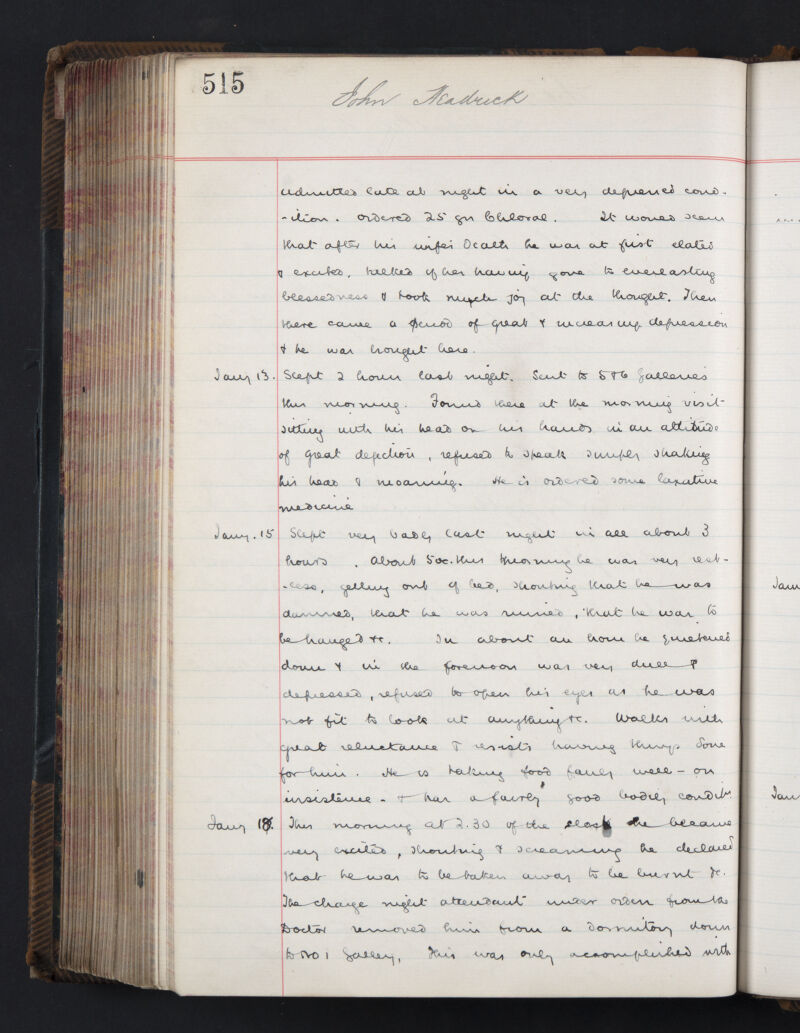 515
John
admitted late at night in a very depressed cond-
-ition. Ordered 25 grs Chloral. It would seem
that after his wife's death he was at first elated
& excited, talked of her having gone to everlasting
blessedness & took much joy at the thought. Then
there came a period of great & increasing depression
& he was brought here.
Jany 13. Slept 2 hours last night. Sent to 5 & 6 Galleries
this morning. Found there at the morning visit
sitting with his head on his hands in an attitude
of great dejection, refused to speak simply shaking
his head & moaning. He is ordered some laxative
medicine
Jany. 15 Slept very badly last night in all about 3
hours. About 5oc. this morning he was very rest-
-less, getting out of bed, shouting that he was
damned, that he was ruined, that he was to
be hanged &c. In about an hour he quietened
down & in the forenoon was very dull &
depressed, refused to open his eyes as he was
not fit to look at anything &c. Walks with
great reluctance & resists having things done
for him. He is taking food fairly well - on
insistence - & has a fairly good bodily condit^n.
Jany 18. This morning at 2.30 of the clock he became
very excited, shouting & screaming he declared
that he was to be taken away to be burnt &c.
The charge night attendant under orders from the
Doctor removed him from a dormitory down
to No 1 Gallery, this was only accomplished with
Jan
Jan